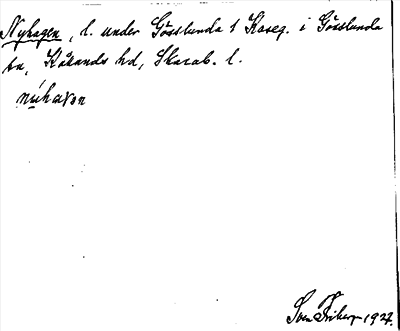 Nyhagen, l. under Gösslunda 1 Kaseg. i Gösslunda
sn, Kålands hd, Skarab. l.
nýhagen
Sven Friberg 1927.